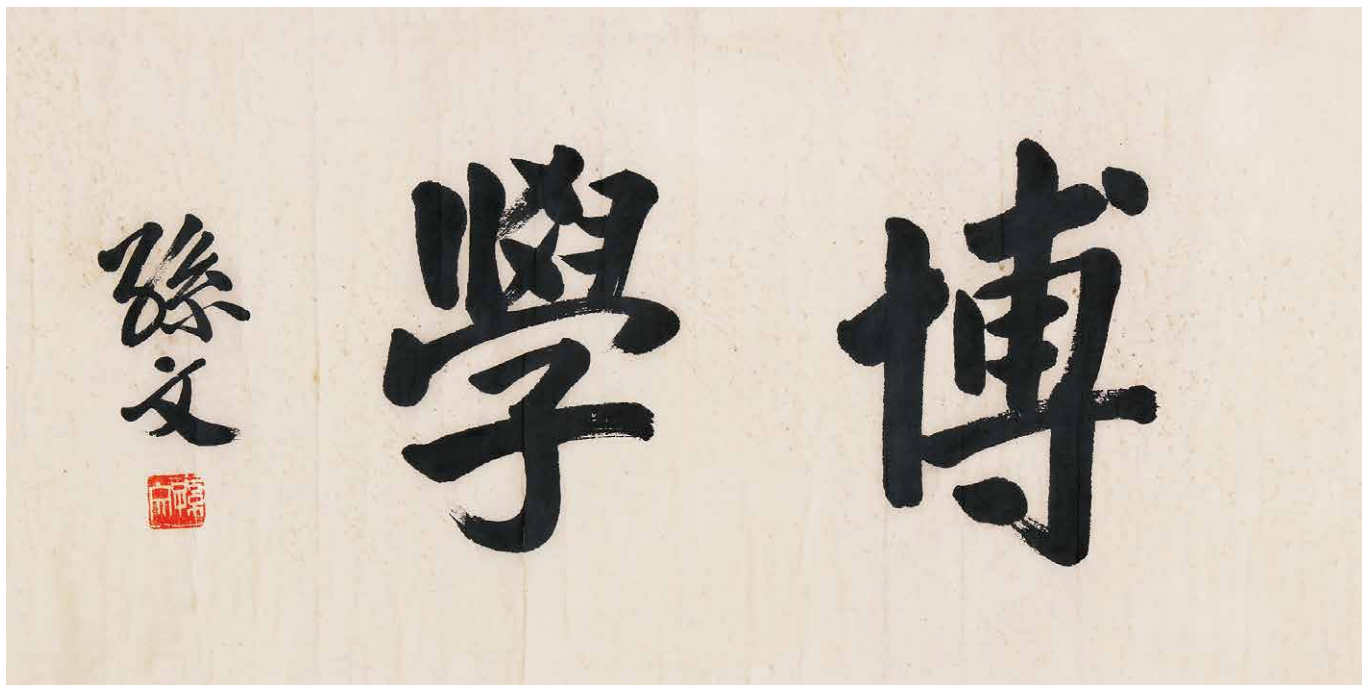 博學
孫文